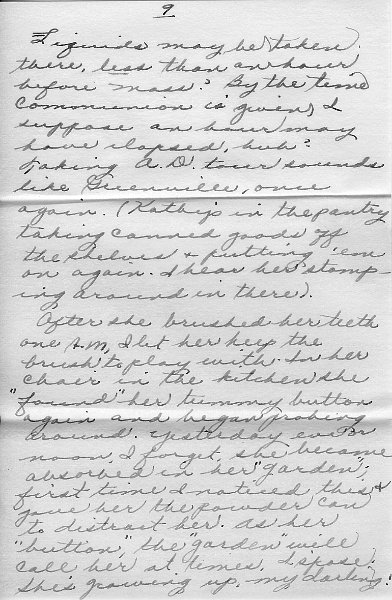 9
Liquids may be taken
there, less than an hour
before mass? By the time
communion is given, I
suppose an hour may
have elapsed, huh?
Taking a.D. tour sounds
like Greenville, once
again. (Kathy's in the pantry
taking canned goods off
the shelves & putting 'em
on again. I hear her stomp-
ing around in there).
After she brushed her teeth
one A.M, I let her keep the
brush to play with. In her
chair in the kitchen she
"found" her tummy button
again and began probing
around. Yesterday eve or
noon, I forget, she became
absorbed in her "garden;
first time I noticed this &
gave her the powder can
to distract her. As her
"button", the "garden" will
call her at times, I spose.
She's growing up, my darling!